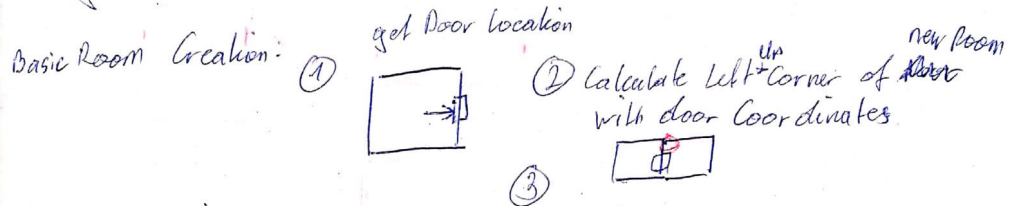 Basic Room Creation:
① get Door Location
② Calculate Left Up Corner of new Room
with door Coordinates
③